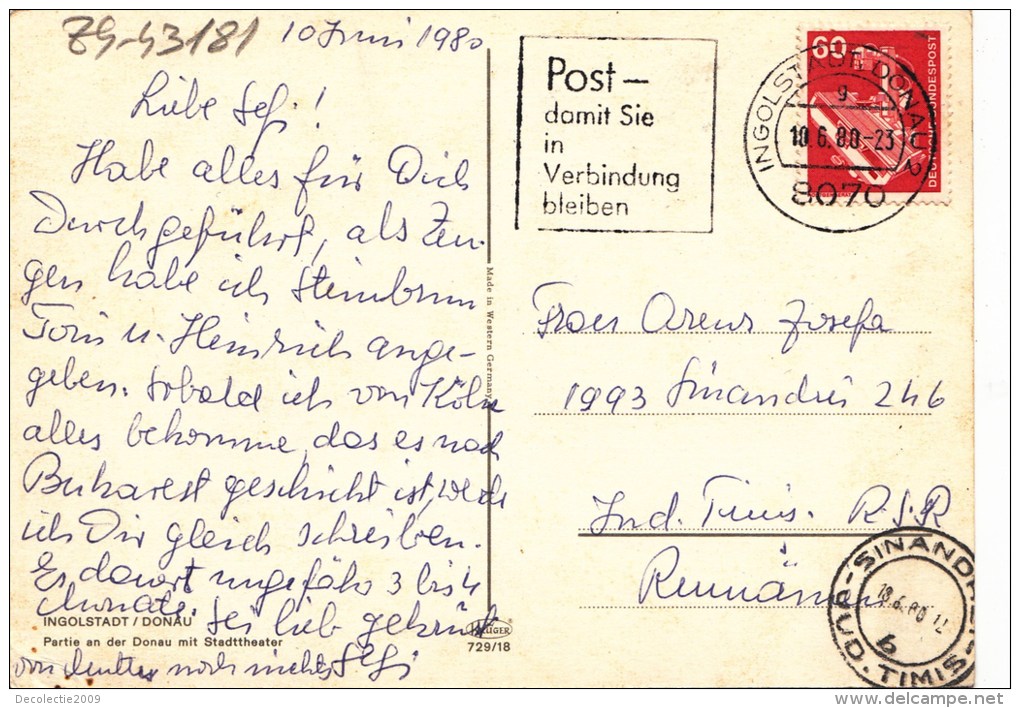 Z4-43181
10 Juni 1980
Liebe Sefi!
Habe alles für Dich
Durchgeführt, als Zeu-
gen habe ich Steinbrun
Toni u. Heinrich ange-
geben. Sobald ich von Köln
alles bekomme, das es nach
Bukarest geschickt ist, werde
ich Dir gleich schreiben.
Es dauert ungefähr 3 bis 4
Monate. Sei lieb gegrüßt
INGOLSTADT / DONAU
Partie an der Donau mit Stadttheater
von noch nichts Sefi
KRÜGER
729/18
Made in Western Germany
Post –
damit Sie
in
Verbindung
bleiben
INGOLSTADT, DONAU 2
g
10.6.80-23
8070
60
DEUTSCHE BUNDESPOST
Frau Josefa
1993 Sinandrei 246
Jud. Timis. R.S.R
Rumänien
SINANDREI
JUD. TIMIS
18.6.80 12
b
Decolectie2009
www.delcampe.net